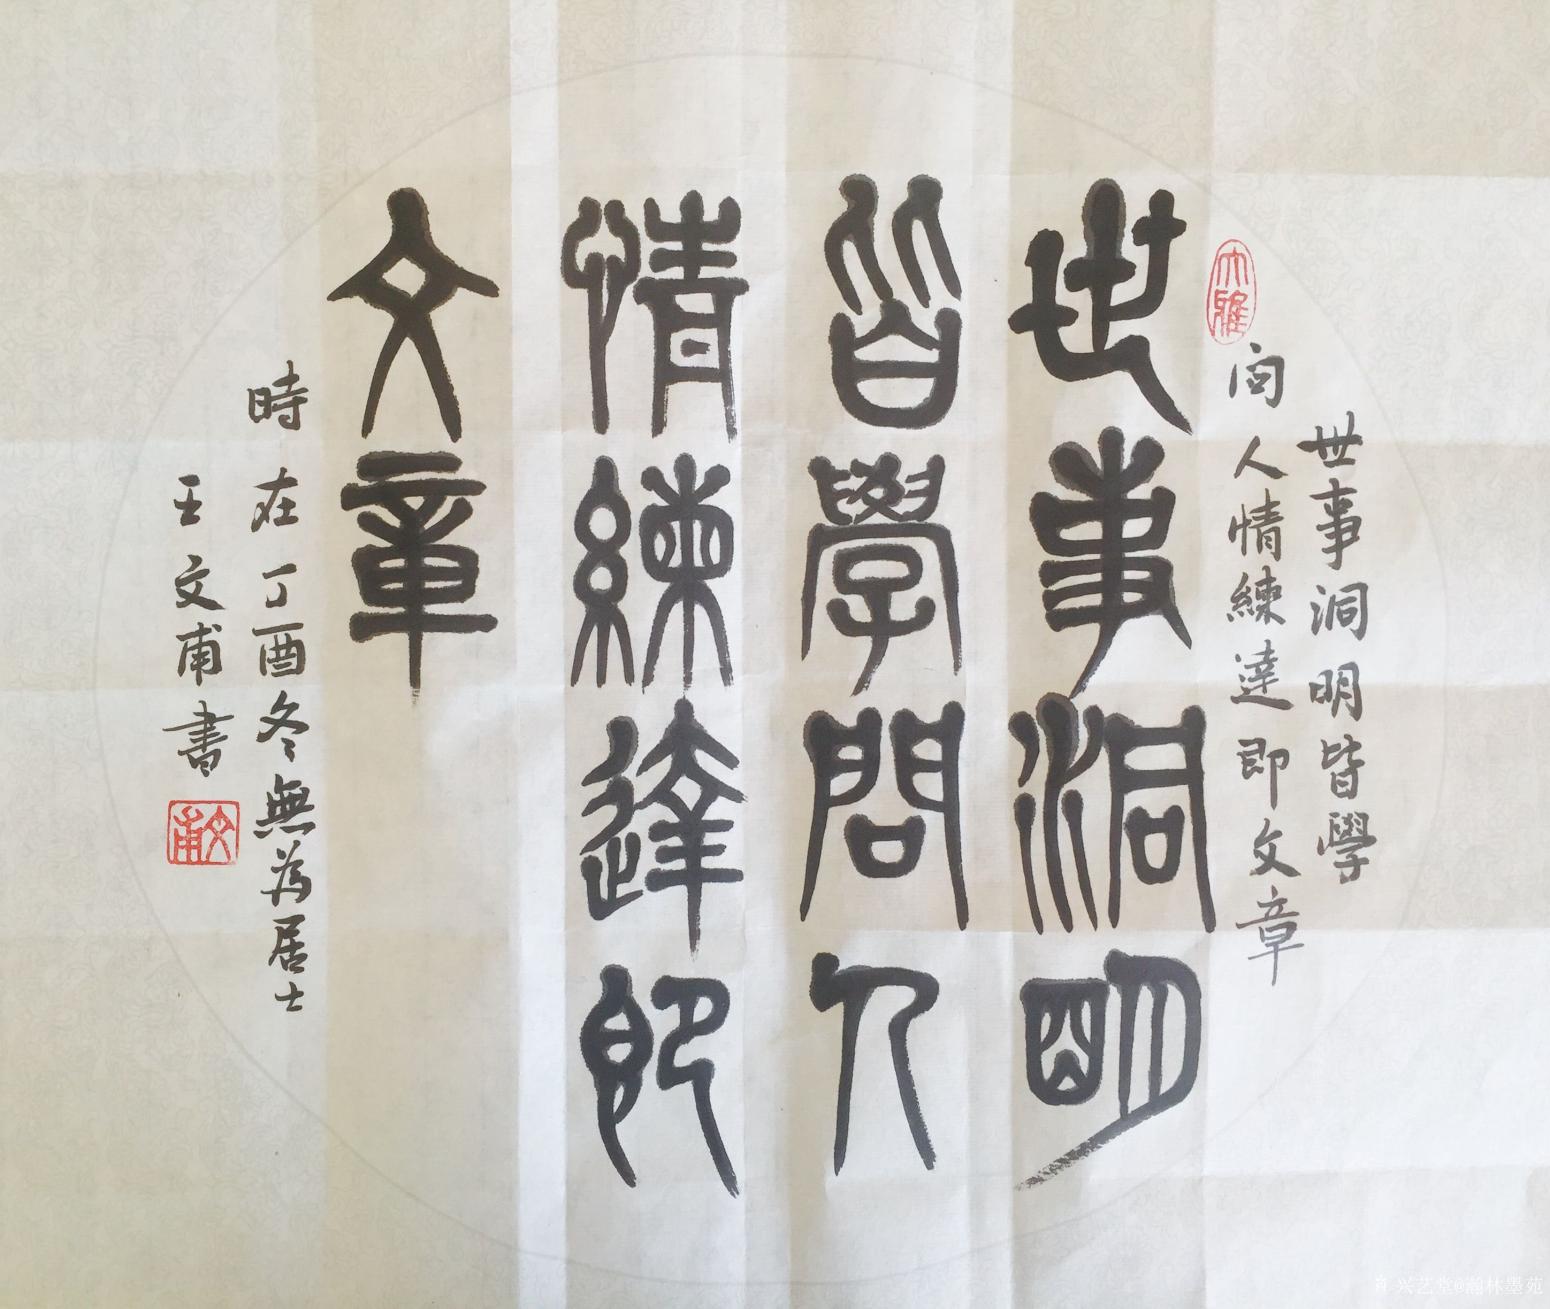 世事洞明皆學
問人情練達即文章
世事洞明
皆學問人
情練達即
文章
時在丁酉冬無為居士
王文甫書
大雅
文甫
兴艺堂@瀚林墨苑